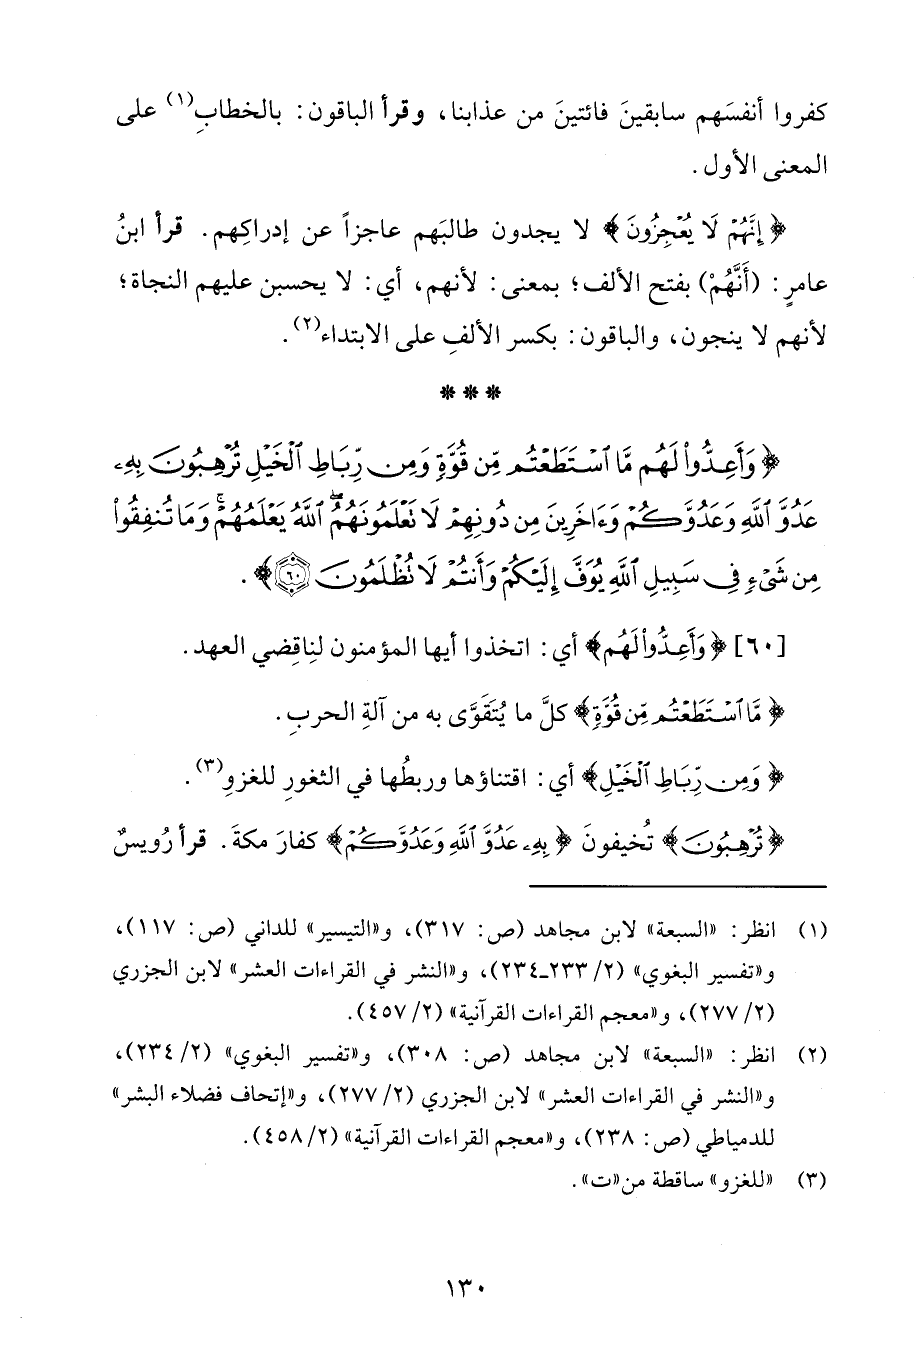 كفروا أنفسَهم سابقينَ فائتينَ من عذابنا، وقرأ الباقون: بالخطابِ(١) على
المعنى الأول.
﴿إِنَّهُمْ لَا يُعْجِزُونَ﴾ لا يجدون طالبَهم عاجزاً عن إدراكِهم. قرأ ابنُ
عامرٍ: (أَنَّهُمْ) بفتح الألف؛ بمعنى: لأنهم، أي: لا يحسبن عليهم النجاة؛
لأنهم لا ينجون، والباقون: بكسر الألفِ على الابتداء(٢).
***
﴿وَأَعِدُّواْ لَهُم مَّا ٱسْتَطَعْتُم مِّن قُوَّةٍ وَمِن رِّبَاطِ ٱلْخَيْلِ تُرْهِبُونَ بِهِۦ
عَدُوَّ ٱللَّهِ وَعَدُوَّكُمْ وَءَاخَرِينَ مِن دُونِهِمْ لَا تَعْلَمُونَهُمُ ۖ ٱللَّهُ يَعْلَمُهُمْ ۚ وَمَا تُنفِقُواْ
مِن شَىْءٍ فِى سَبِيلِ ٱللَّهِ يُوَفَّ إِلَيْكُمْ وَأَنتُمْ لَا تُظْلَمُونَ ٦٠﴾.
[٦٠] ﴿وَأَعِدُّواْ لَهُم﴾ أي: اتخذوا أيها المؤمنون لنِاقِضي العهد.
﴿مَّا ٱسْتَطَعْتُم مِّن قُوَّةٍ﴾ كلَّ ما يُتَقَوَّى به من آلةِ الحربِ.
﴿وَمِن رِّبَاطِ ٱلْخَيْلِ﴾ أي: اقتناؤها وربطُها في الثغورِ للغزوِ(٣).
﴿تُرْهِبُونَ﴾ تُخيفونَ ﴿بِهِۦ عَدُوَّ ٱللَّهِ وَعَدُوَّكُمْ﴾ كفارَ مكةَ. قرأ رُويسٌ
(١) انظر: «السبعة» لابن مجاهد (ص: ٣١٧)، و«التيسير» للداني (ص: ١١٧)،
و«تفسير البغوي» (٢/ ٢٣٣ـ٢٣٤)، و«النشر في القراءات العشر» لابن الجزري
(٢/ ٢٧٧)، و«معجم القراءات القرآنية» (٢/ ٤٥٧).
(٢) انظر: «السبعة» لابن مجاهد (ص: ٣٠٨)، و«تفسير البغوي» (٢/ ٢٣٤)،
و«النشر في القراءات العشر» لابن الجزري (٢/ ٢٧٧)، و«إتحاف فضلاء البشر»
للدمياطي (ص: ٢٣٨)، و«معجم القراءات القرآنية» (٢/ ٤٥٨).
(٣) «للغزو» ساقطة من«ت».
١٣٠